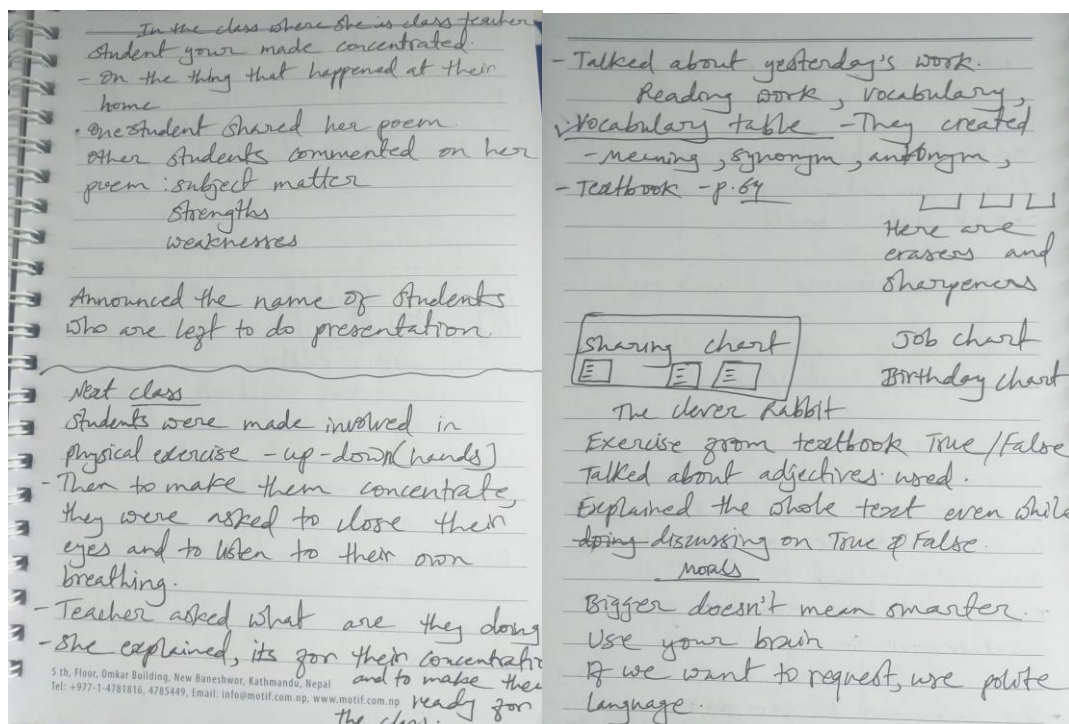 In the class where she is class teacher
student your made concentrated.
- On the thing that happened at their
home
• One student shared her poem
other students commented on her
poem : subject matter
strengths
weaknesses
Announced the name of students
who are left to do presentation.
Next class
Students were made involved in
physical exercise - up - down (hands)
- Then to make them concentrate,
they were asked to close their
eyes and to listen to their own
breathing.
- Teacher asked what are they doing
- She explained, its for their concentratio
and to make the
ready for
the class.
5 th, Floor, Omkar Building, New Baneshwor, Kathmandu, Nepal
Tel: +977-1-4781816, 4785449, Email: info@motif.com.np, www.motif.com.np
- Talked about yesterday's work.
Reading work, vocabulary,
✓Vocabulary table - They created
- meaning, synonym, antonym,
- Textbook - p. 64
Here are
erasers and
sharpeners
Sharing chart
Job chart
Birthday chart
The clever Rabbit
Exercise from textbook True/False
Talked about adjectives used.
Explained the whole text even while
doing discussing on True & False.
Morals
Bigger doesn't mean smarter.
Use your brain
If we want to request, use polite
language.